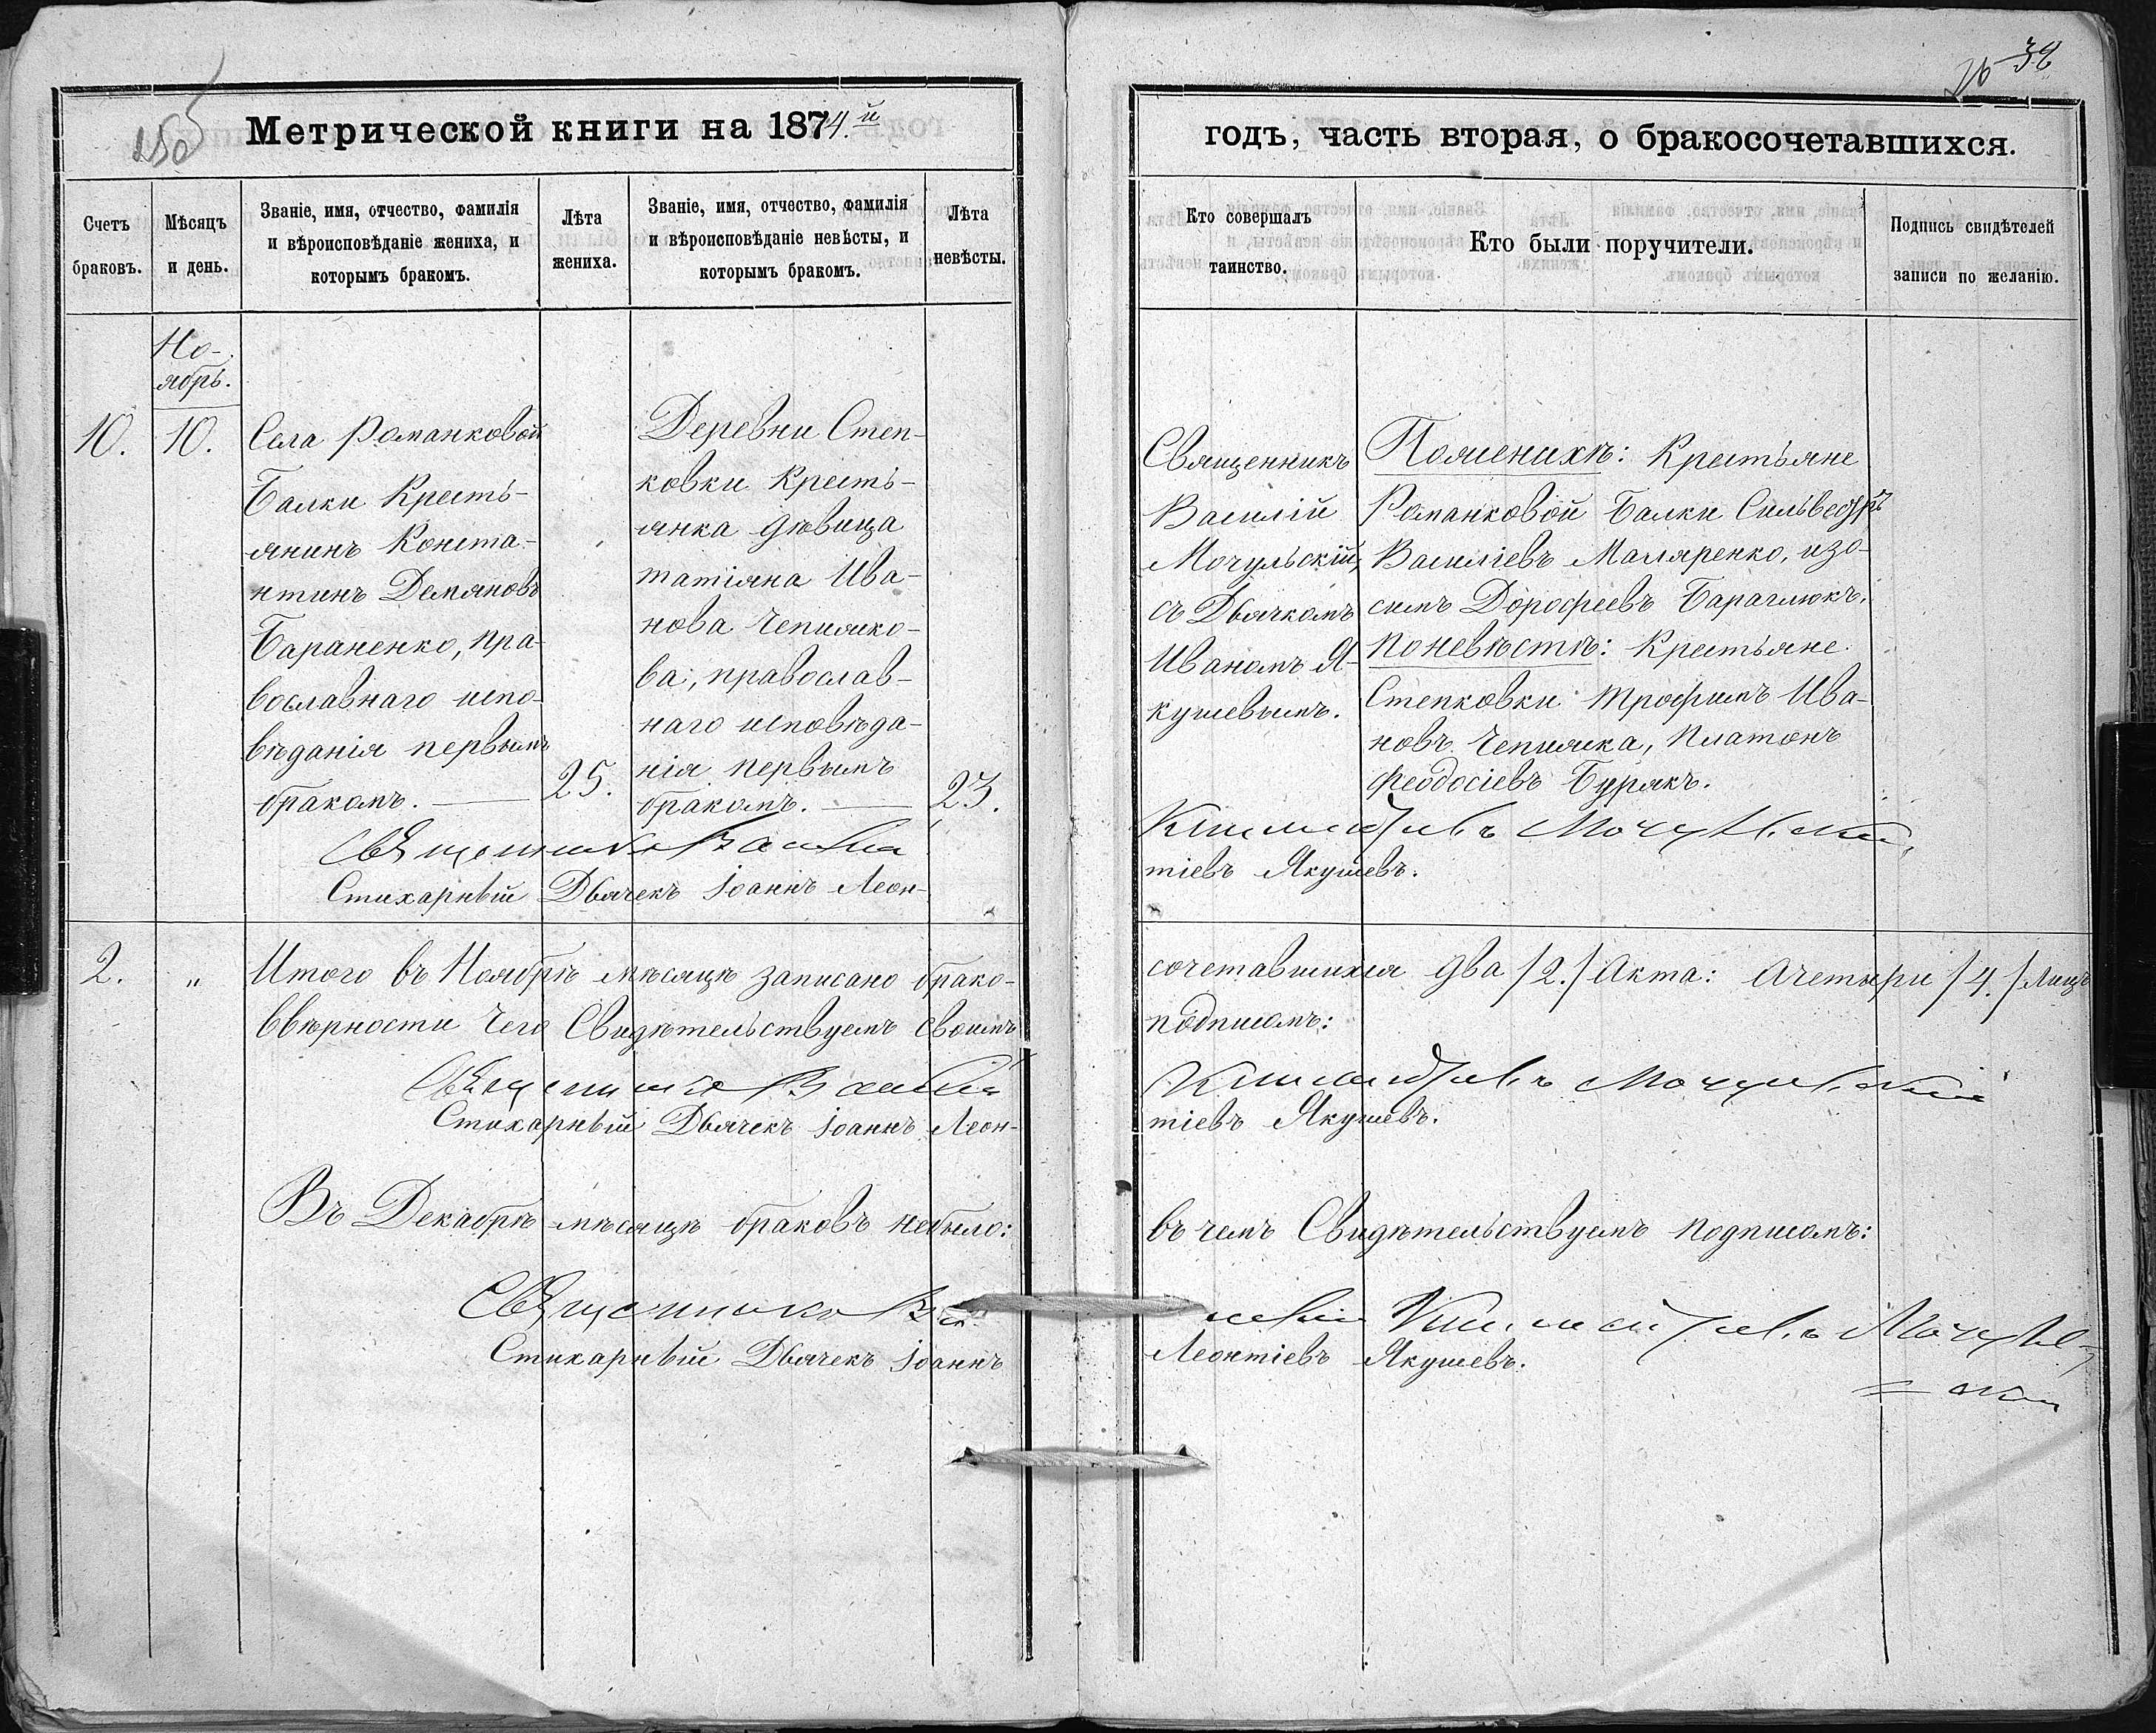 Метрической книги на 1874.й
Счетъ браковъ.
Мѣсяцъ и день.
Званіе, имя, отчество, фамилія
и вѣроисповѣданіе жениха, и
которымъ бракомъ.
Лѣта
жениха.
Званіе, имя, отчество, фамилія
и вѣроисповѣданіе невѣсты, и
которымъ бракомъ.
Лѣта
невѣсты.
Но-
ябрь.
10.
10.
Села Романковой
Балки Кресть-
янинъ Конста-
нтинъ Демяновъ
Бараненко, пра-
вославнаго испо-
вѣданія первымъ
бракомъ.
25.
Деревни Степ-
ковки Кресть-
янка дѣвица
татіяна Ива-
нова Чепиико-
ва, православ-
наго исповѣда-
нія первымъ
бракомъ.
23.
Священникъ Василій
Стихарный Дьячекъ Іоаннъ Леон-
2.
"
Итого въ Ноябрѣ мѣсяцѣ записано брако-
ввѣрности Чего Свидѣтельствуемъ своимъ
Священникъ Василій
Стихарный Дьячекъ Іоаннъ Леон-
Въ Декабрѣ мѣсяцѣ браковъ небыло:
Священникъ Ва
Стихарный Дьячекъ Іоаннъ
годъ, часть вторая, о бракосочетавшихся.
Кто совершалъ
таинство.
Кто были поручители.
Подпись свидѣтелей
записи по желанію.
Священникъ
Василій
Мочульскій,
съ Дьячкомъ
Иваномъ Я-
кушевымъ.
Поженихѣ: Крестьяне
Романковой Балки Сильвестръ
Василіевъ Маляренко, изо-
симъ Дорофеевъ Бараглюкъ.
поневѣстѣ: Крестьяне
Степковки Трофимъ Ива-
новъ Чепиика, Платонъ
Феодосіевъ Бурякъ.
Мочульскій
тіевъ Якушевъ.
сочетавшихся два /2./ Акта: ачетыри /4./ Лицъ
подписомъ:
Мочульскій
тіевъ Якушевъ.
въ чемъ Свидѣтельствуемъ подписомъ:
силій Мочуль-
= скій
Леонтіевъ Якушевъ.